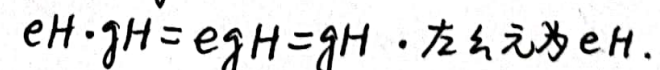 eH·gH=egH=gH．左幺元为eH.